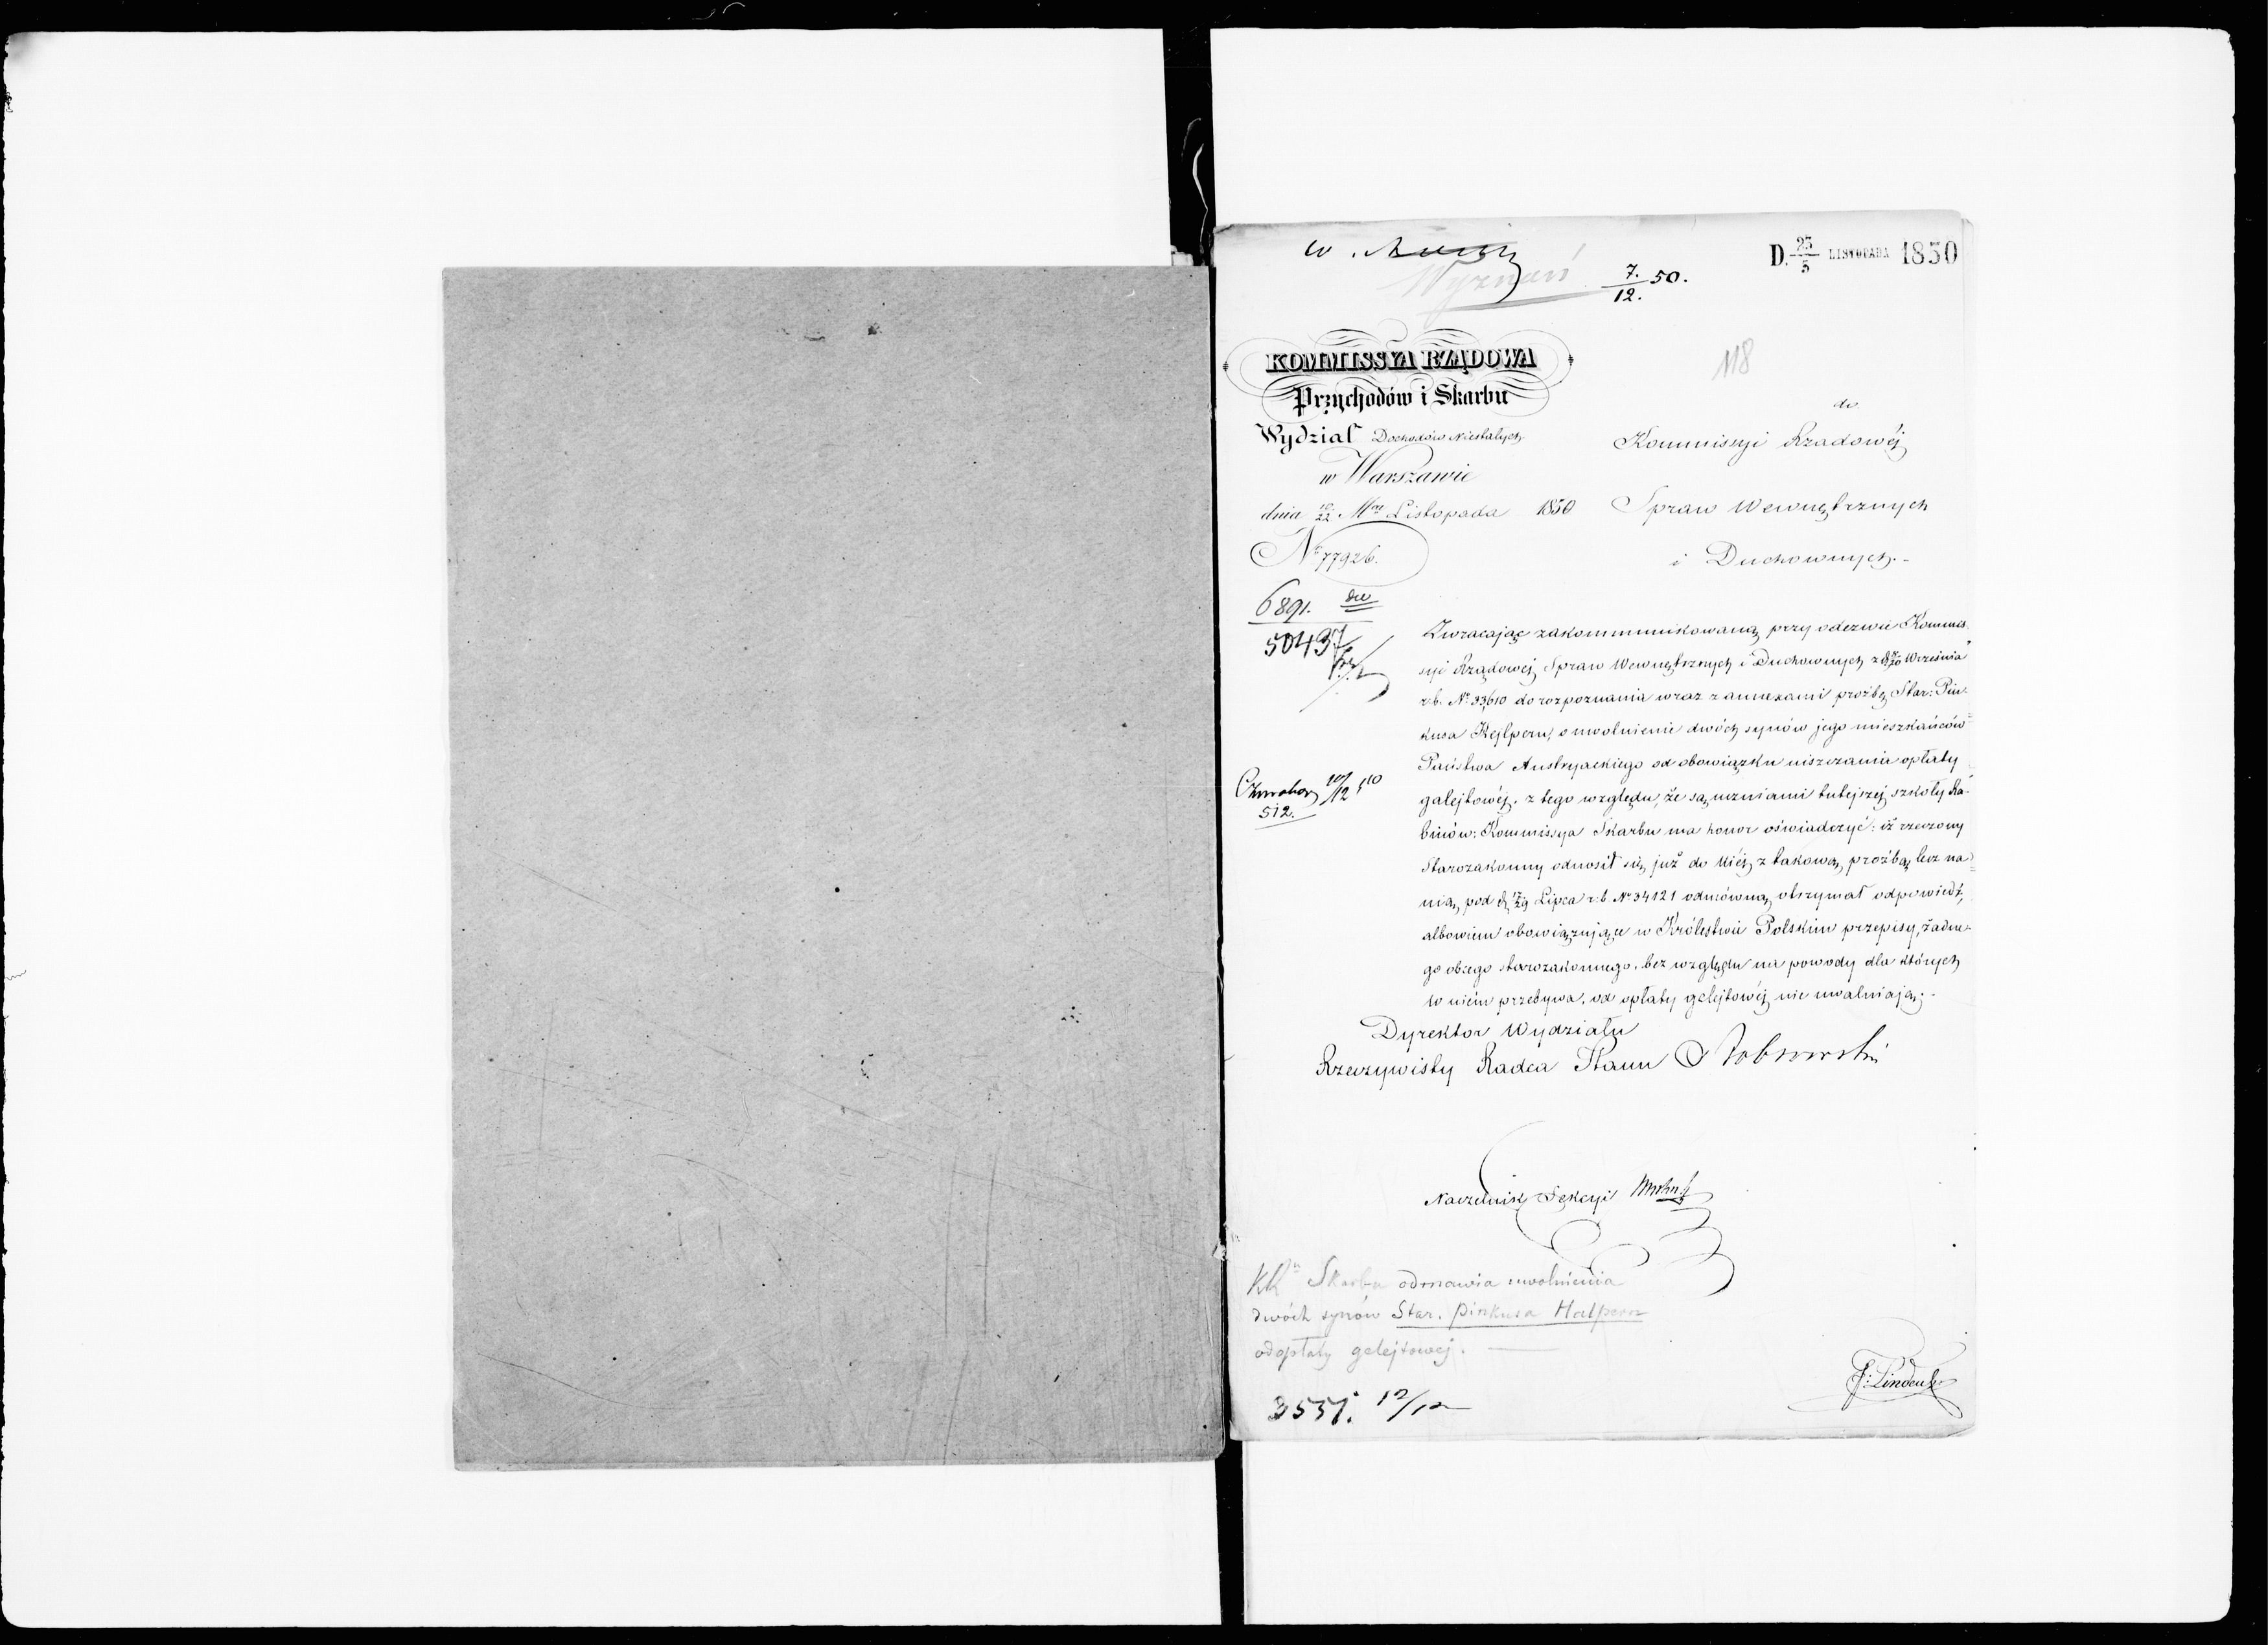 D. 23/5 LISTOPADA 1850
Wyznań
7./12. 50.
118
KOMMISSYA RZĄDOWA
Przychodów i Skarbu
Wydział Dochodów Niestałych
w Warszawie
dnia 10/22 Mca Listopada 1850
№ 77926.
do
Kommissyi Rządowéj
Spraw Wewnętrznych
i Duchownych.-
6891.
50437
512.
Zwracając zakommunikowaną przy odezwie Kommis-
syi Rządowéj Spraw Wewnętrznych i Duchownych z d. 8/20 Września
r.b. № 33,610 do rozpoznania wraz z annexami proźbę Star: Pin-
kusa Hejlpern, o uwolnienie dwóch synów jego mieszkańców
Państwa Austryackiego od obowiązku uiszczania opłaty
galejtowéj, z tego względu, że są uczniami tutejszéj szkoły Ra-
binów; Kommissya Skarbu ma honor oświadczyć: iż rzeczony
Starozakonny odnosił się już do Niéj z takową proźbą lecz na
nią pod d. 17/29 Lipca r.b. № 34121 odmówną otrzymał odpowiedź,
albowiem obowiązujące w Królestwie Polskim przepisy, żadne-
go obcego starozakonnego, bez względu na powody dla których
w niém przebywa, od opłaty gelejtowéj nie uwalniają.-
Dyrektor Wydziału
Rzeczywisty Radca Stanu
Naczelnik Sekcyi
KR Skarbu odmawia uwolnienia
dwóch synów Star. Pinkusa Halpern
od opłaty gelejtowej.
3557. 12/12